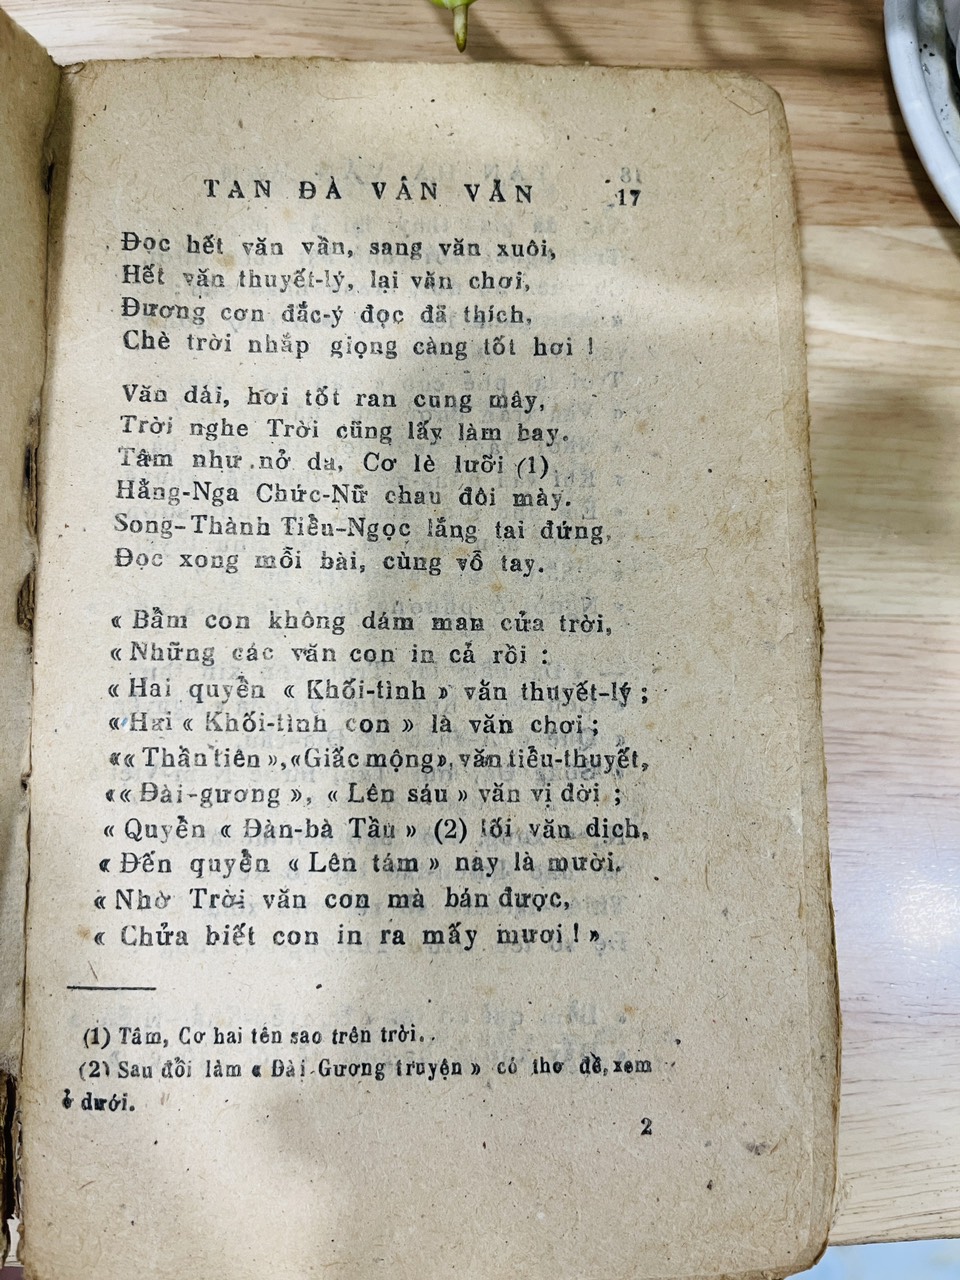 TAN ĐÀ VÂN VĂN 17
Đọc hết văn vần, sang văn xuôi,
Hết văn thuyết-lý, lại văn chơi,
Đương cơn đắc-ý đọc đã thích,
Chè trời nhấp giọng càng tốt hơi !
Văn dài, hơi tốt ran cung mây,
Trời nghe Trời cũng lấy làm hay.
Tâm như nở dạ, Cơ lè lưỡi (1)
Hằng-Nga Chức-Nữ chau đôi mày.
Song-Thành Tiểu-Ngọc lắng tai đứng,
Đọc xong mỗi bài, cùng vỗ tay.
« Bẩm con không dám man cửa trời,
« Những các văn con in cả rồi :
« Hai quyển « Khối-tình » văn thuyết-lý ;
« Hai « Khối-tình con » là văn chơi ;
«« Thần tiên », «Giấc mộng», văn tiểu-thuyết,
«« Đài-gương », « Lên sáu » văn vị đời ;
« Quyển « Đàn-bà Tầu » (2) lối văn dịch,
« Đến quyển « Lên tám » nay là mười.
« Nhờ Trời văn con mà bán được,
« Chửa biết con in ra mấy mươi ! »
(1) Tâm, Cơ hai tên sao trên trời.
(2) Sau đổi làm « Đài-Gương truyện » có thơ đề, xem
ở dưới.
2